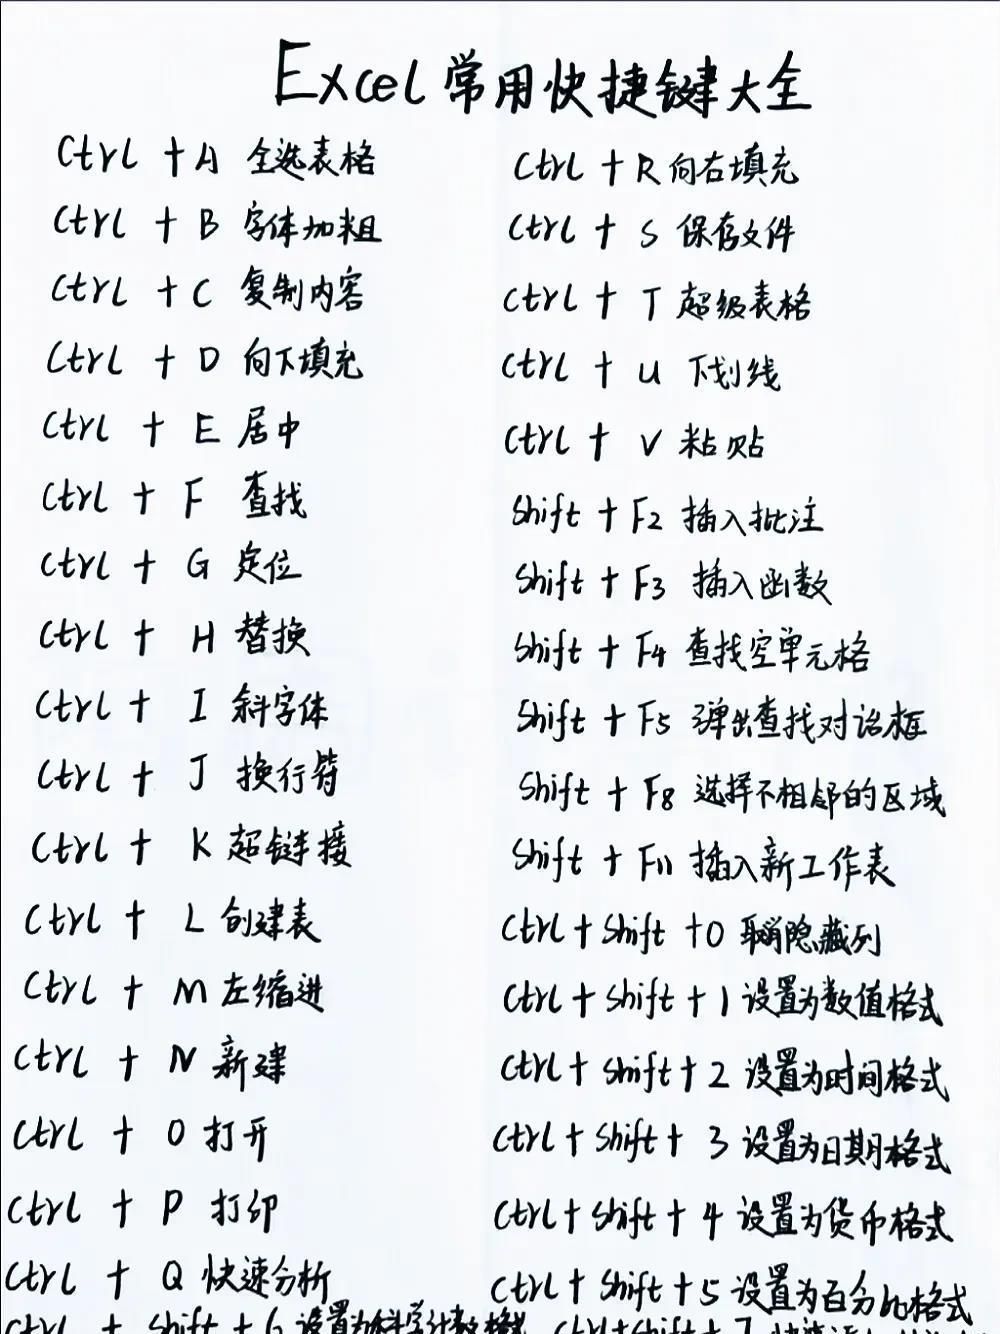 Excel常用快捷键大全
Ctrl + A 全选表格
Ctrl + B 字体加粗
Ctrl + C 复制内容
Ctrl + D 向下填充
Ctrl + E 居中
Ctrl + F 查找
Ctrl + G 定位
Ctrl + H 替换
Ctrl + I 斜字体
Ctrl + J 换行符
Ctrl + K 超链接
Ctrl + L 创建表
Ctrl + M 左缩进
Ctrl + N 新建
Ctrl + O 打开
Ctrl + P 打印
Ctrl + Q 快速分析
Ctrl + R 向右填充
Ctrl + S 保存文件
Ctrl + T 超级表格
Ctrl + U 下划线
Ctrl + V 粘贴
Shift + F2 插入批注
Shift + F3 插入函数
Shift + F4 查找空单元格
Shift + F5 弹出查找对话框
Shift + F8 选择不相邻的区域
Shift + F11 插入新工作表
Ctrl + Shift + 0 取消隐藏列
Ctrl + Shift + 1 设置为数值格式
Ctrl + Shift + 2 设置为时间格式
Ctrl + Shift + 3 设置为日期格式
Ctrl + Shift + 4 设置为货币格式
Ctrl + Shift + 5 设置为百分比格式
Ctrl + Shift + 6 设置为科学计数格式
Ctrl + Shift + 7